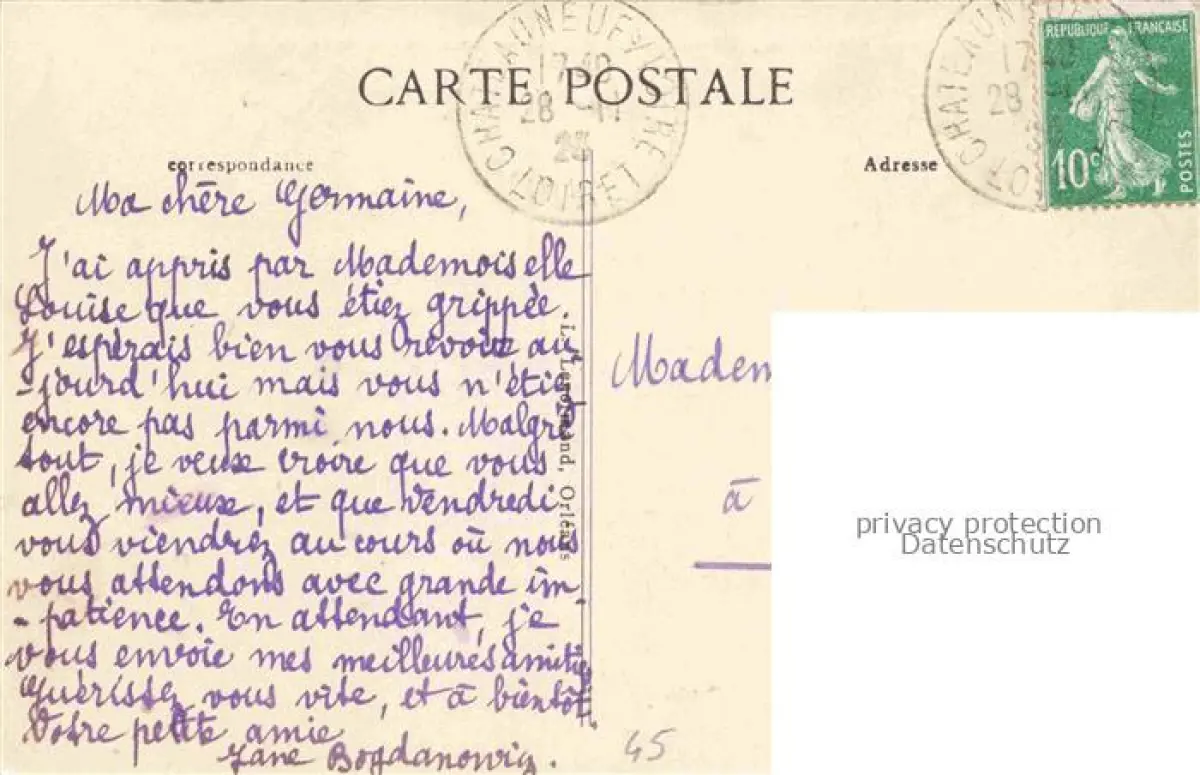 CHATEAUNEUF-S-LOIRE
17 40
28 -11
23
LOIRET
CARTE POSTALE
REPUBLIQUE FRANÇAISE
10c
POSTES
correspondance
Adresse
Ma chère Germaine,
J'ai appris par Mademoiselle
Louise que vous étiez grippée.
J'espèrais bien vous revoir au
-jourd'hui mais vous n'étiez
encore pas parmi nous. Malgré
tout, je veux croire que vous
allez mieux, et que Vendredi
vous viendrez au cours où nous
vous attendons avec grande im
-patience. En attendant, je
vous envoie mes meilleures amitiés
Guérissez vous vite, et à bientôt.
Votre petite amie
Jane Bogdanowig.
L. Lenormand, Orléans
Madem
à
45
privacy protection
Datenschutz